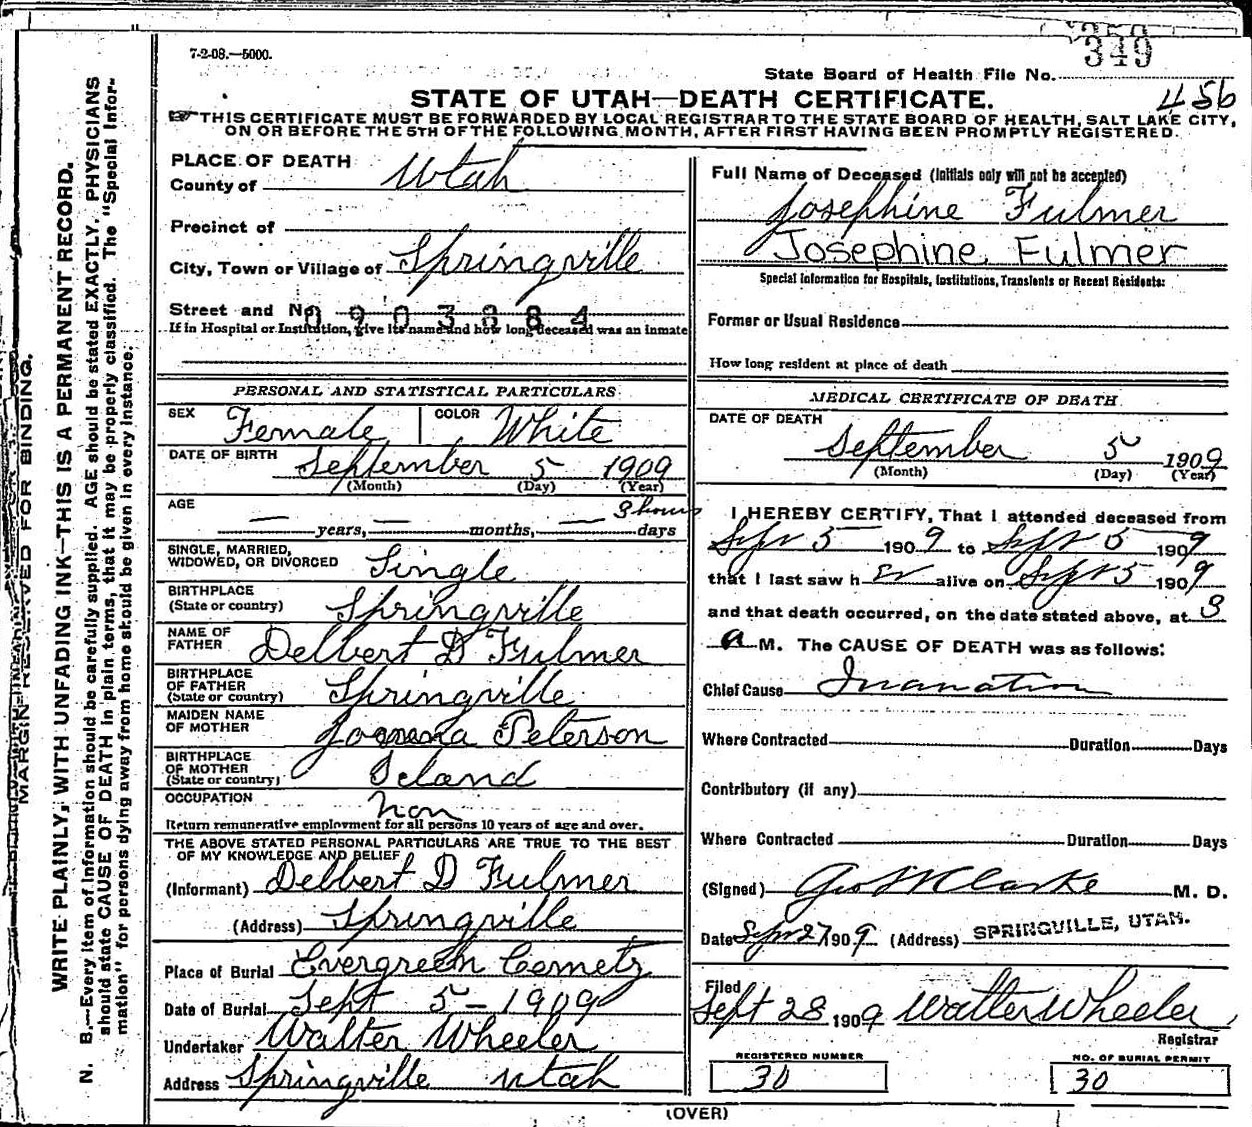 7-2-08.—5000.
349
State Board of Health File No.
456
STATE OF UTAH—DEATH CERTIFICATE.
THIS CERTIFICATE MUST BE FORWARDED BY LOCAL REGISTRAR TO THE STATE BOARD OF HEALTH, SALT LAKE CITY,
ON OR BEFORE THE 5TH OF THE FOLLOWING MONTH, AFTER FIRST HAVING BEEN PROMPTLY REGISTERED.
MARGIN RESERVED FOR BINDING.
WRITE PLAINLY, WITH UNFADING INK—THIS IS A PERMANENT RECORD.
N. B.—Every item of information should be carefully supplied. AGE should be stated EXACTLY. PHYSICIANS
should state CAUSE OF DEATH in plain terms, that it may be properly classified. The "Special Infor-
mation" for persons dying away from home should be given in every instance.
PLACE OF DEATH
County of Utah
Precinct of
City, Town or Village of Springville
Street and No. 0903884
If in Hospital or Institution, give its name and how long deceased was an inmate
PERSONAL AND STATISTICAL PARTICULARS
SEX Female COLOR White
DATE OF BIRTH September 5 1909
(Month) (Day) (Year)
AGE 3 hours
— years, — months, — days
SINGLE, MARRIED,
WIDOWED, OR DIVORCED Single
BIRTHPLACE
(State or country) Springville
NAME OF
FATHER Delbert D Fulmer
BIRTHPLACE
OF FATHER
(State or country) Springville
MAIDEN NAME
OF MOTHER Peterson
BIRTHPLACE
OF MOTHER
(State or country) Iceland
OCCUPATION non
Return remunerative employment for all persons 10 years of age and over.
THE ABOVE STATED PERSONAL PARTICULARS ARE TRUE TO THE BEST
OF MY KNOWLEDGE AND BELIEF
(Informant) Delbert D Fulmer
(Address) Springville
Place of Burial Evergreen Cemetz
Date of Burial Sept 5 - 1909
Undertaker Walter Wheeler
Address Springville Utah
Full Name of Deceased (Initials only will not be accepted)
Josephine Fulmer
Josephine Fulmer
Special Information for Hospitals, Institutions, Transients or Recent Residents:
Former or Usual Residence
How long resident at place of death
MEDICAL CERTIFICATE OF DEATH
DATE OF DEATH
September 5 1909
(Month) (Day) (Year)
I HEREBY CERTIFY, That I attended deceased from
Sept 5 1909 to Sept 5 1909
that I last saw h er alive on Sept 5 1909
and that death occurred, on the date stated above, at 3
a M. The CAUSE OF DEATH was as follows:
Chief Cause Inanation
Where Contracted Duration Days
Contributory (if any)
Where Contracted Duration Days
(Signed) Geo Clarke M. D.
Date Sept 27 1909 (Address) SPRINGVILLE, UTAH.
Filed
Sept 28 1909 Walter Wheeler
Registrar
REGISTERED NUMBER
30
NO. OF BURIAL PERMIT
30
(OVER)